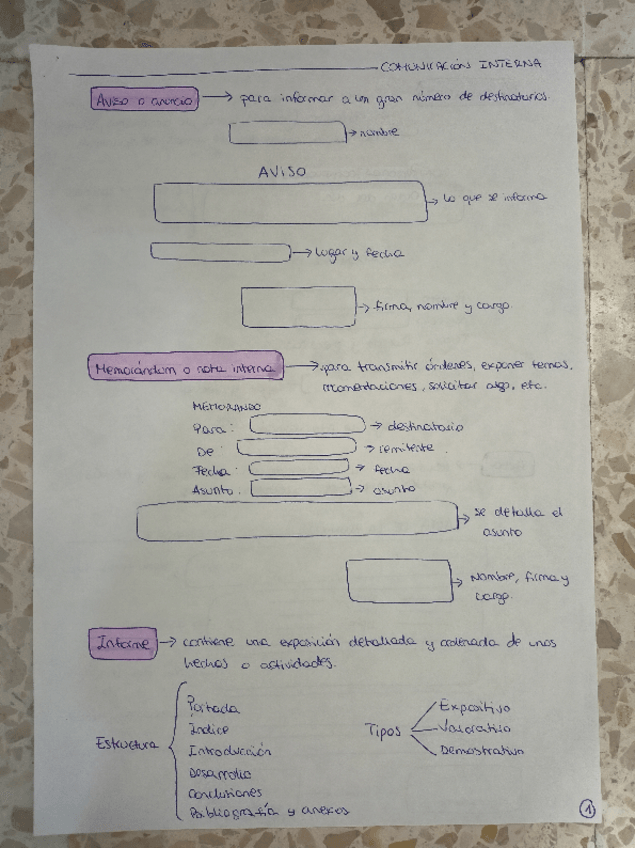 COMUNICACIÓN INTERNA
Aviso o anuncio → para informar a un gran número de destinatarios.
→ nombre
AVISO
→ lo que se informa
→ lugar y fecha
→ firma, nombre y cargo.
Memorándum o nota interna → para transmitir órdenes, exponer temas,
recomendaciones, solicitar algo, etc.
MEMORANDO
Para: → destinatario
De: → remitente.
Fecha: → fecha
Asunto: → asunto
→ se detalla el
asunto
→ Nombre, firma y
cargo.
Informe → contiene una exposición detallada y ordenada de unos
hechos o actividades.
Estructura
Portada
Índice
Introducción
Desarrollo
Conclusiones
Bibliografía y anexos
Tipos
Expositivo
Valorativo
Demostrativo
1